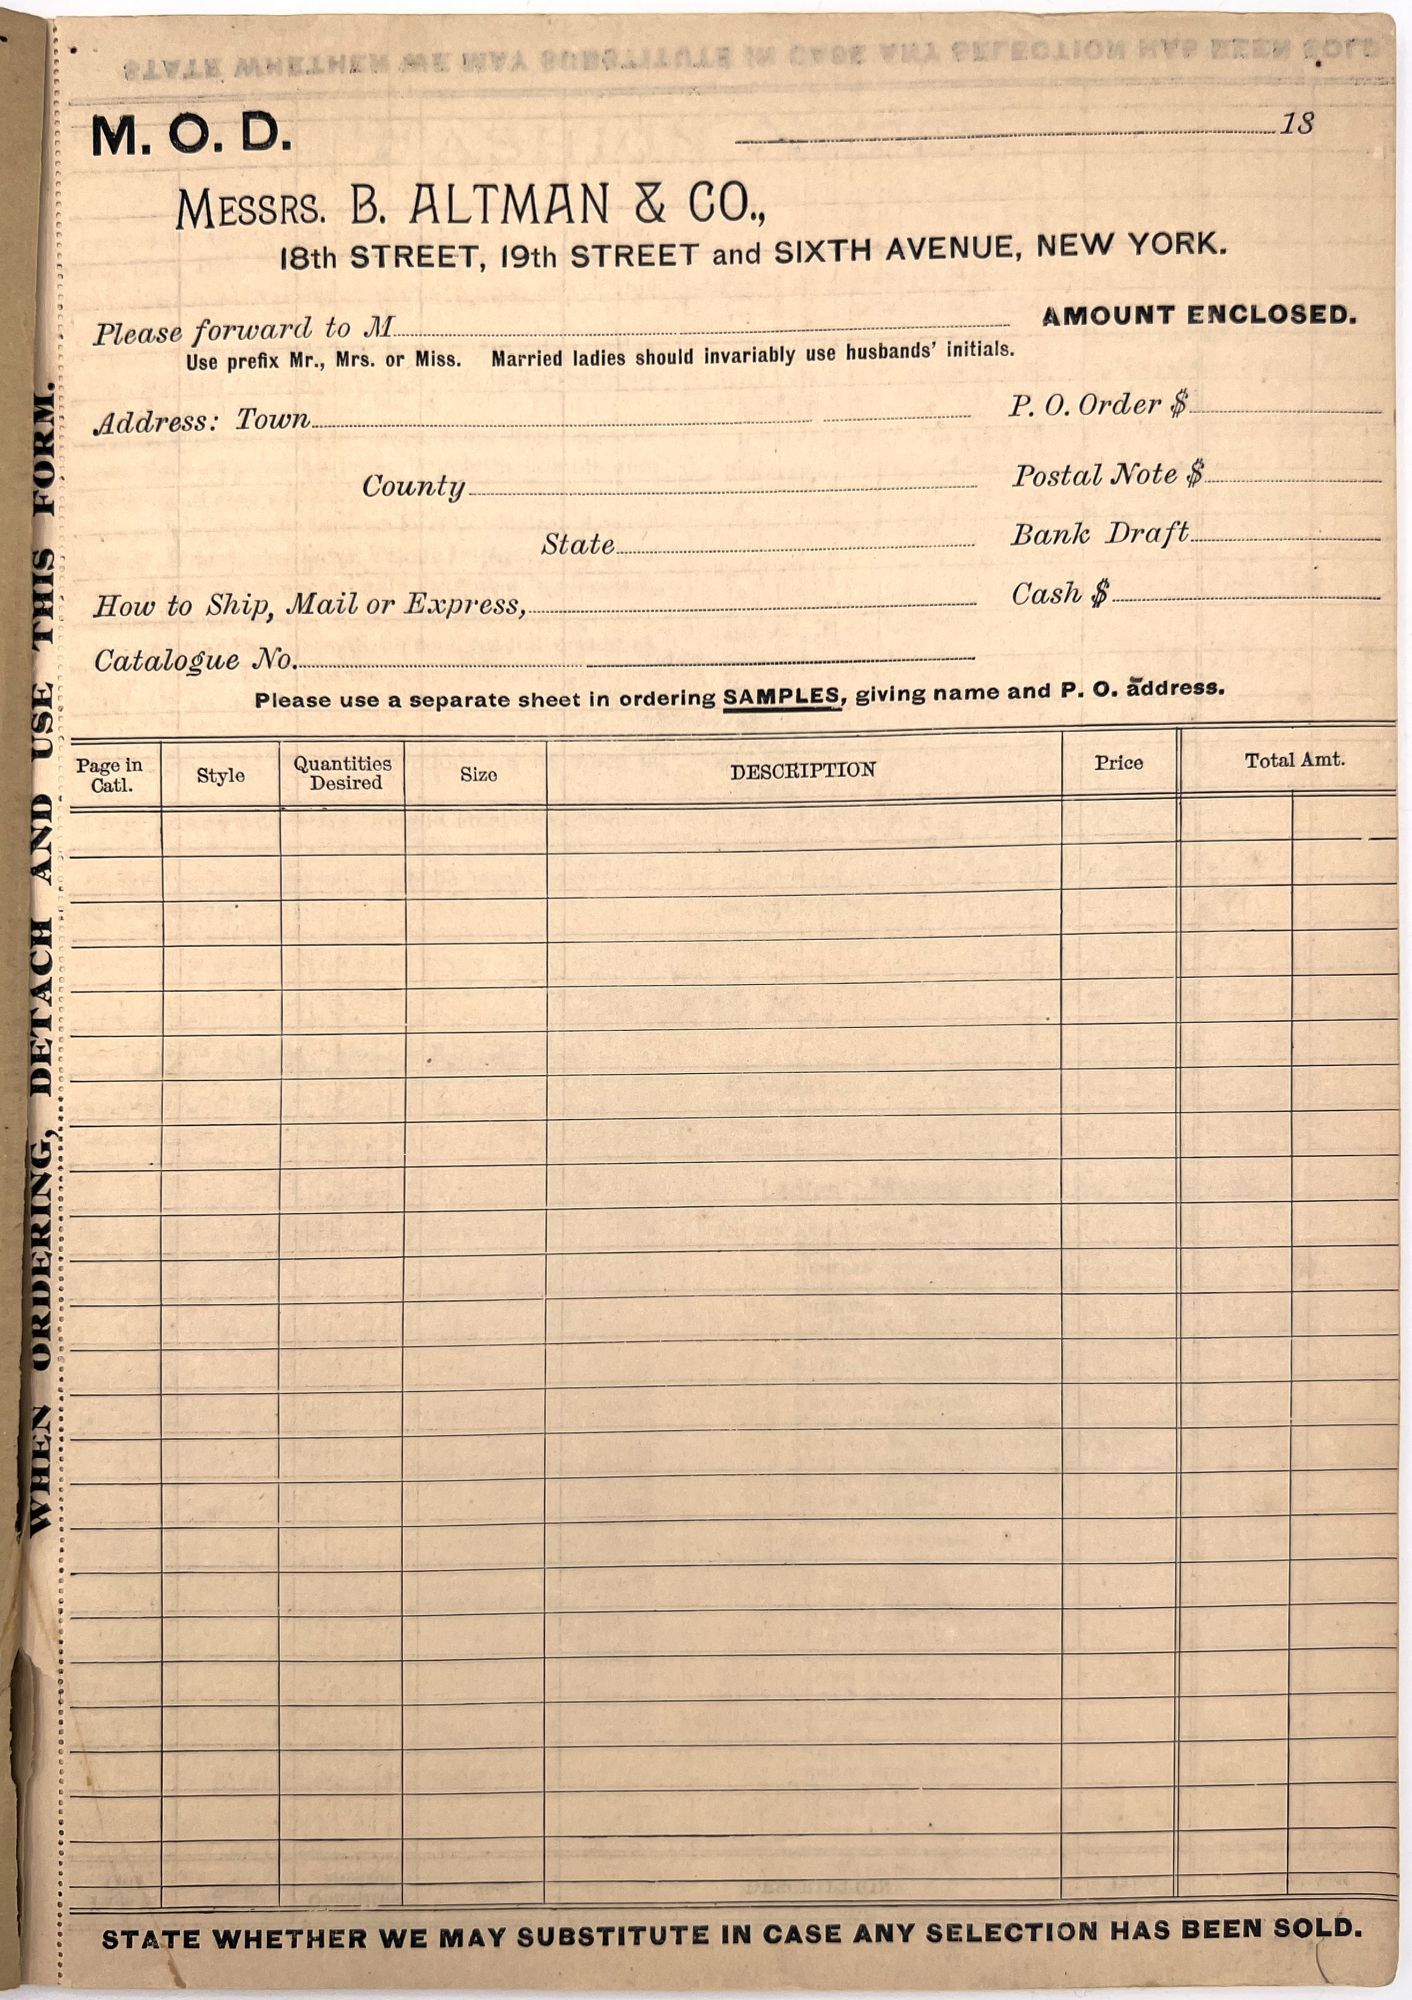 M. O. D.
18
MESSRS. B. ALTMAN & CO.,
18th STREET, 19th STREET and SIXTH AVENUE, NEW YORK.
Please forward to M
AMOUNT ENCLOSED.
Use prefix Mr., Mrs. or Miss. Married ladies should invariably use husbands' initials.
Address: Town
P. O. Order $
County
Postal Note $
State
Bank Draft
How to Ship, Mail or Express,
Cash $
Catalogue No.
Please use a separate sheet in ordering SAMPLES, giving name and P. O. address.
Page in Catl. Style Quantities Desired Size DESCRIPTION Price Total Amt.
STATE WHETHER WE MAY SUBSTITUTE IN CASE ANY SELECTION HAS BEEN SOLD.
WHEN ORDERING, DETACH AND USE THIS FORM.